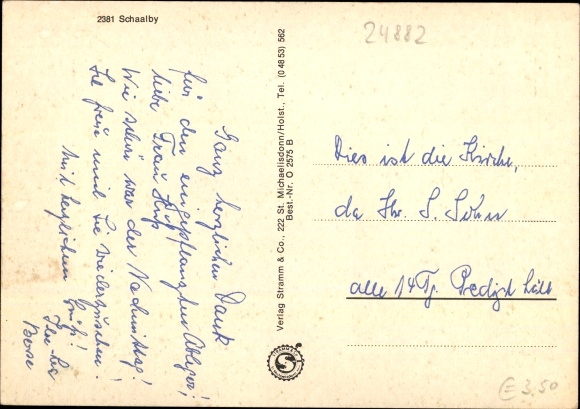 2381 Schaalby
24882
Ganz herzlichen Dank
für den eingepflanzten Ableger!
liebe Frau
Wie schön war der Nachmittag!
Ich freue mich Sie wiederzusehen!
Mit herzlichem Gruß!
Verlag Stramm & Co., 222 St. Michaelisdonn/Holst., Tel. (0 48 53) 562
Best.-Nr. O 2575 B
Dies ist die Kirche,
da Ihr S. Sohn
alle 14 Tg. Predigt hält
€ 3,50